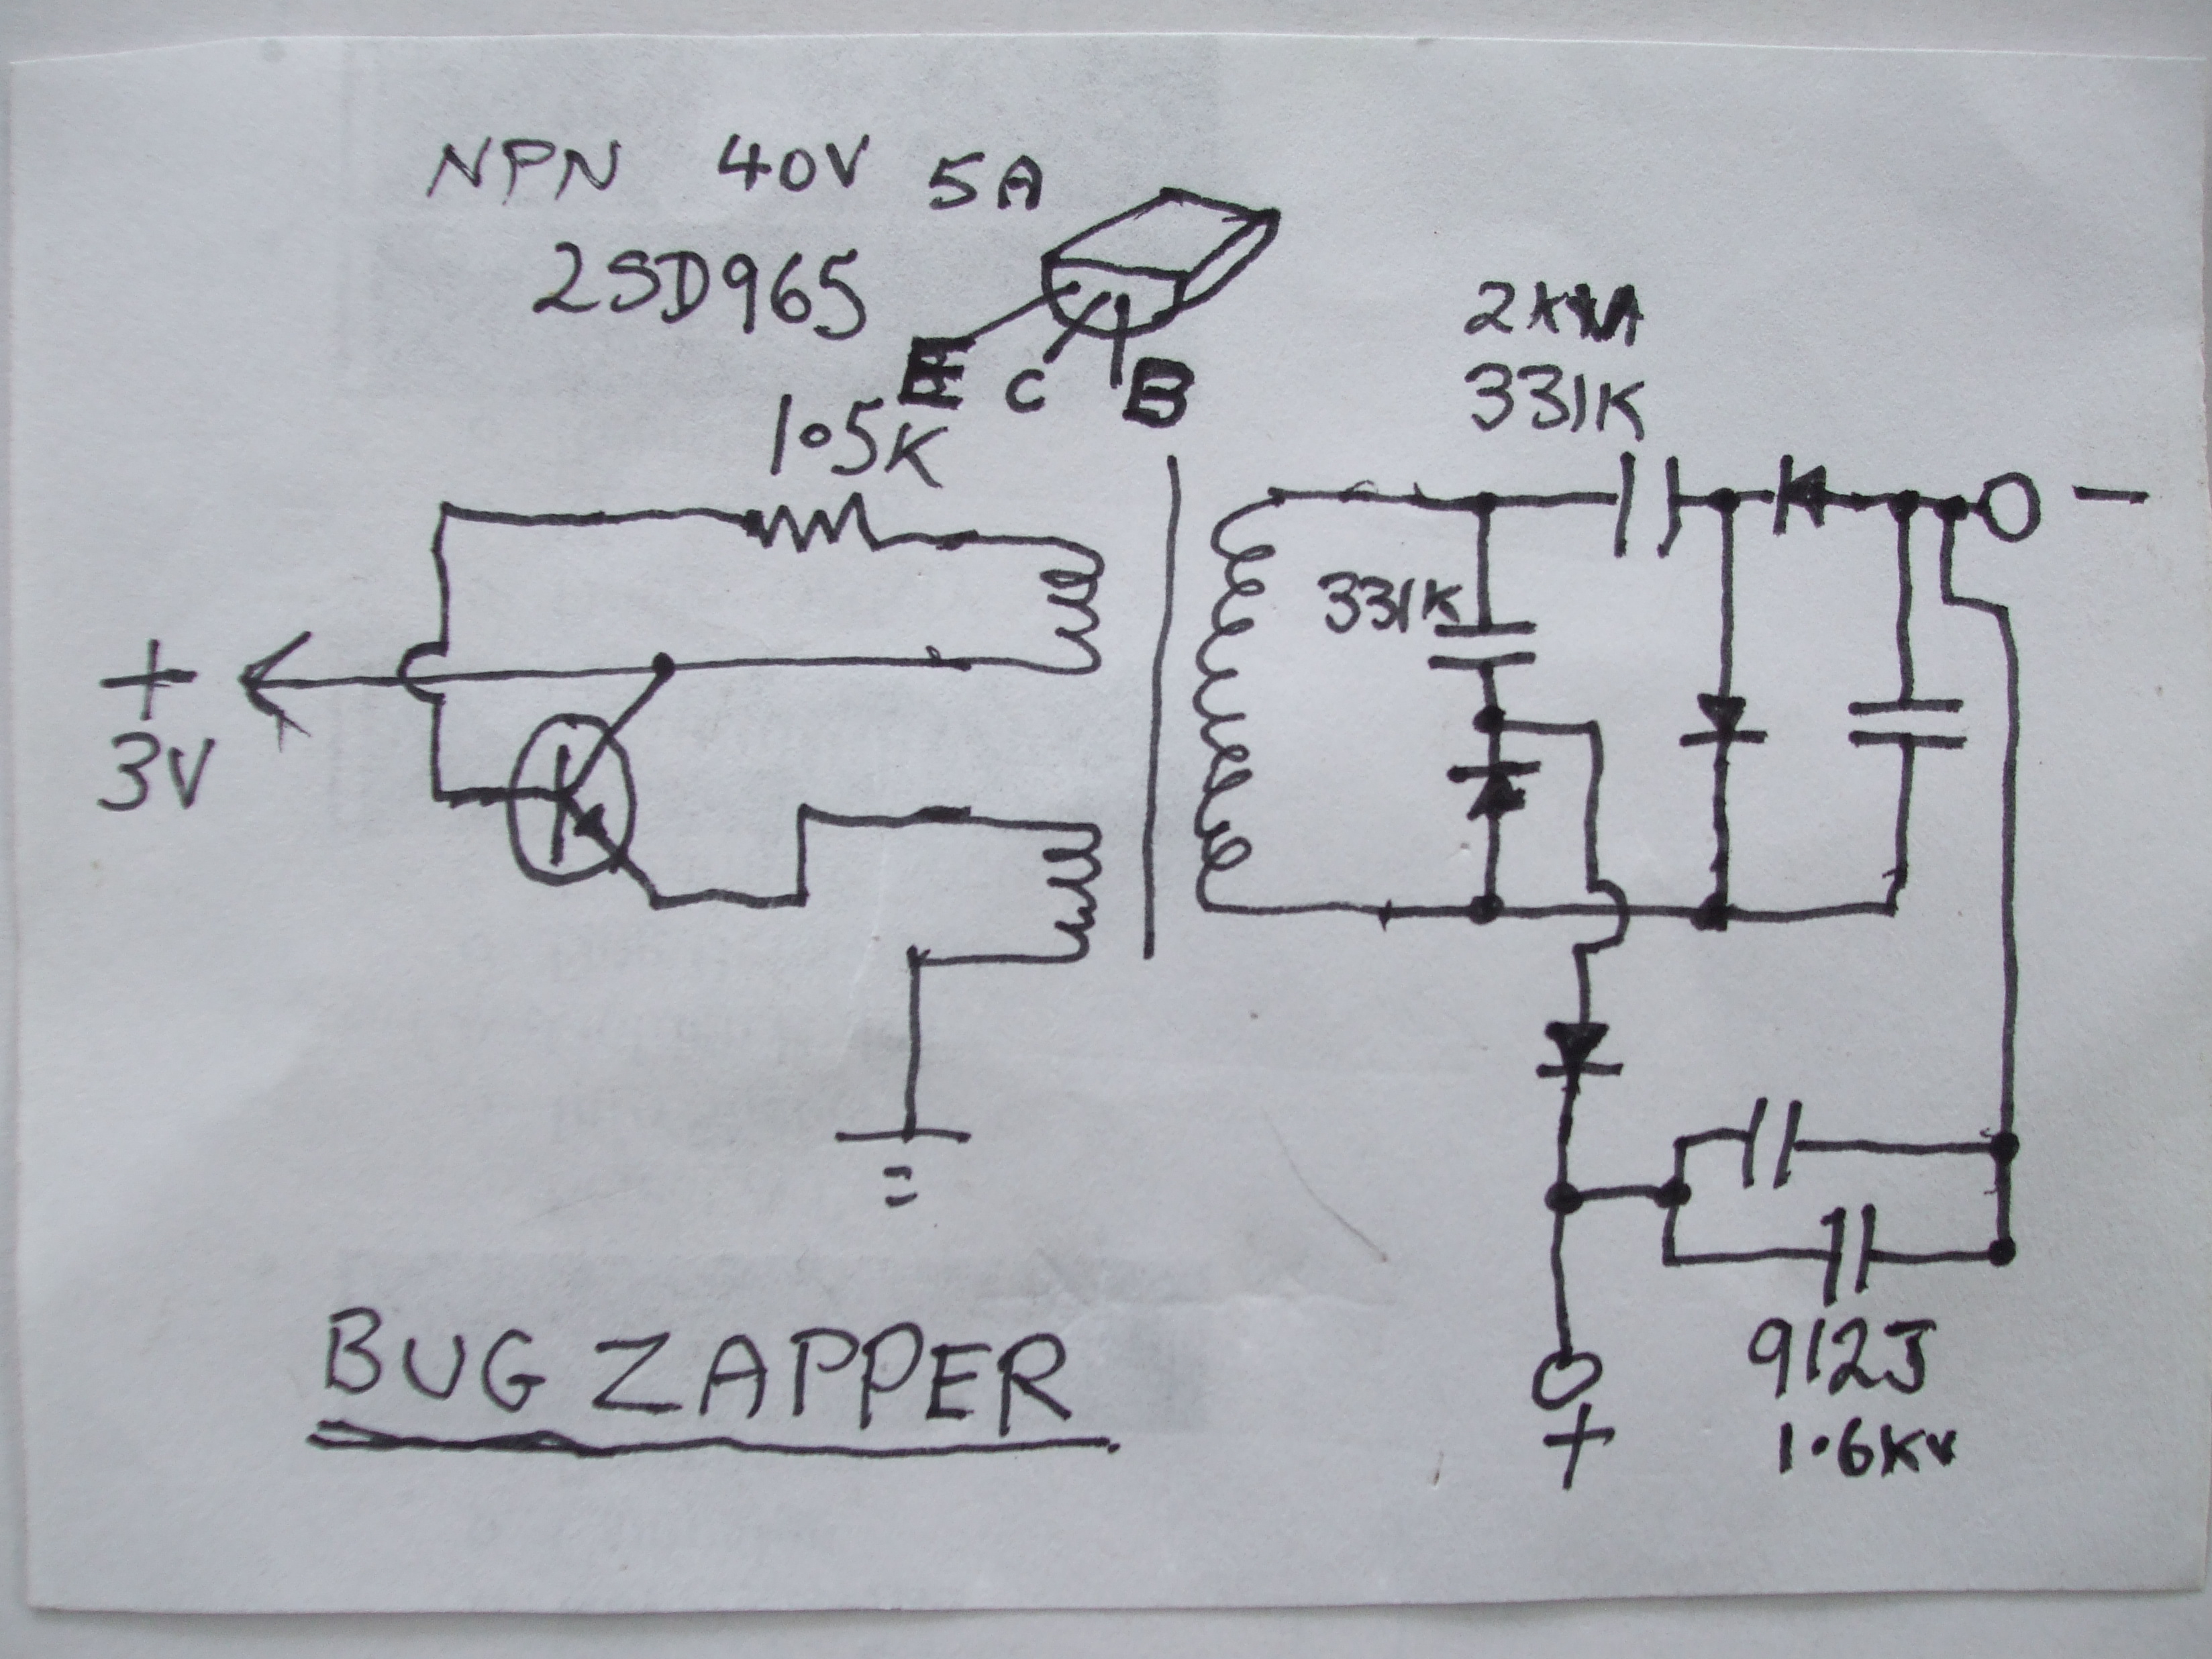 NPN 40V 5A
2SD965
E C B
1.5K
331K
331K
+
3V
-
BUG ZAPPER
+
912J
1.6KV